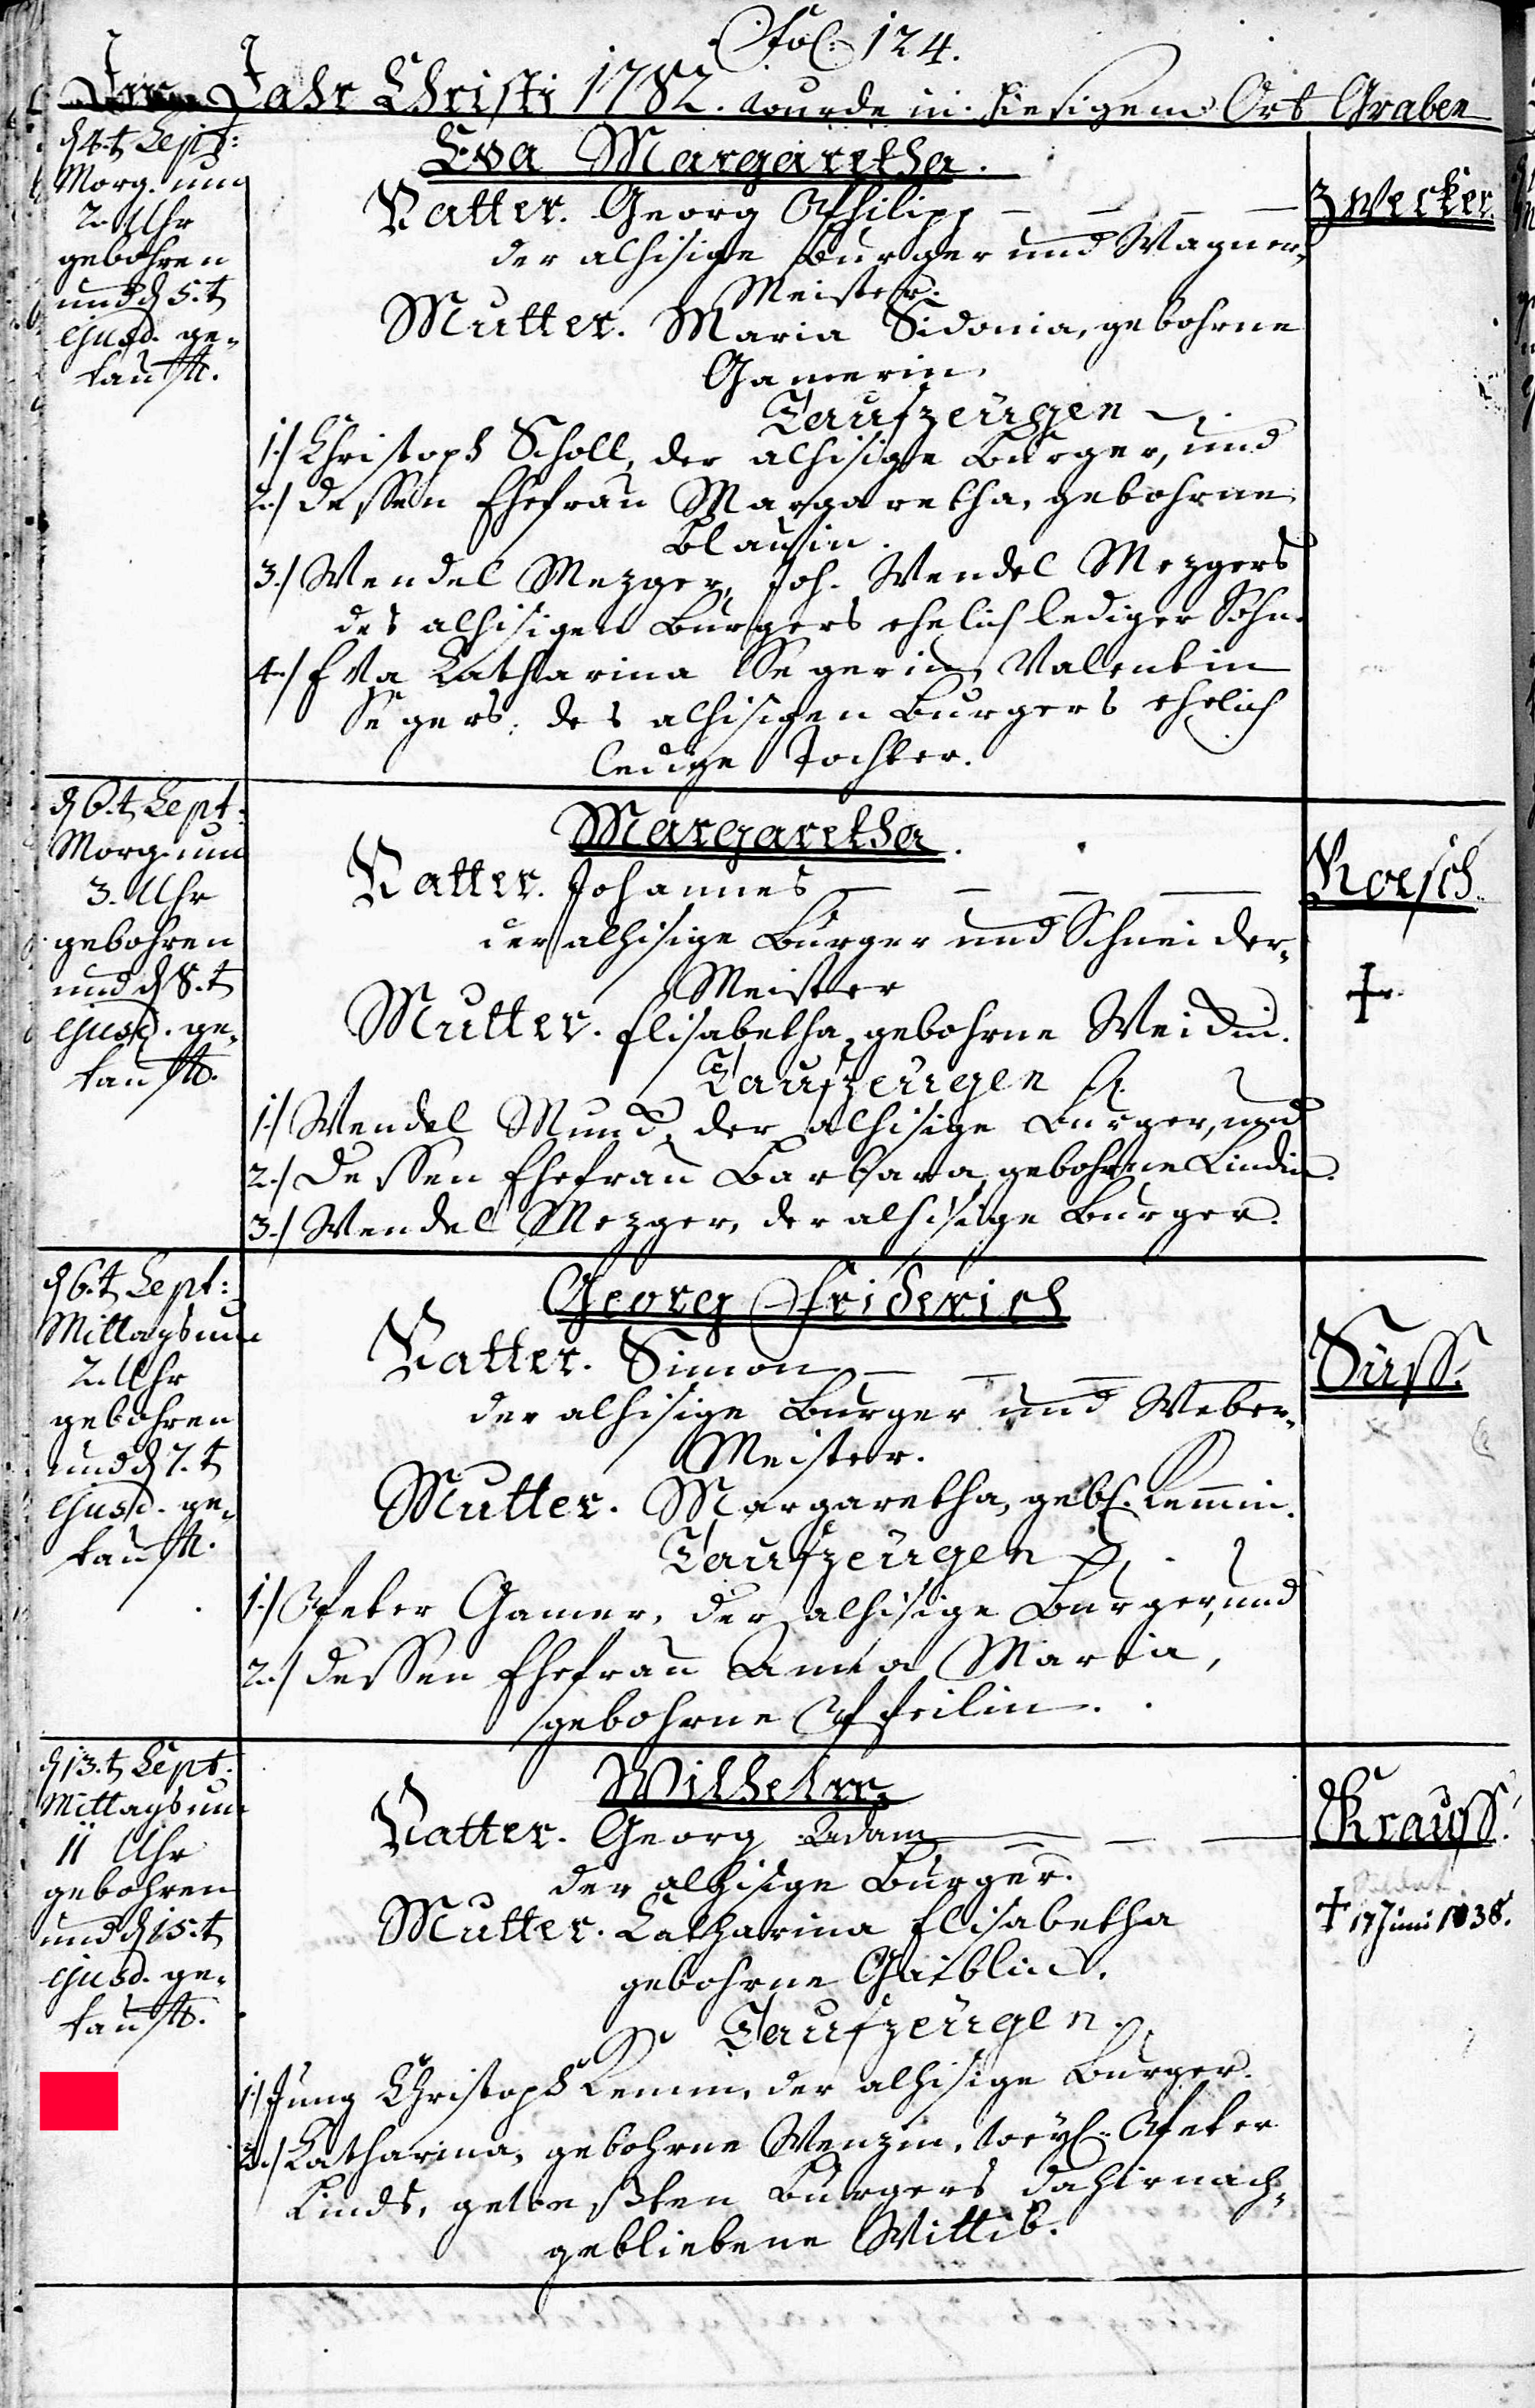 Fol. 124.
Im Jahr Christi 1782. wurde in hiesigem Ort Graben
d 4.t Sept:
Morg. um
2. Uhr
gebohren
und d 5.t
ejusd. ge-
tauft.
Eva Margaretha.
Vatter. Georg Philipp
Zwecker.
der alhisige Burger und Wagner-
Meister.
Mutter. Maria Sidonia, gebohrne
Gamerin.
Taufzeugen
1./ Christoph Scholl, der alhisige Burger, und
2./ dessen Ehefrau Margaretha, gebohrne
Blausin.
3./ Wendel Mezger, Joh. Wendel Mezgers
des alhisigen Burgers ehelich lediger Sohn.
4./ Eva Catharina Segerin, Valentin
Segers, des alhisigen Burgers ehelich
ledige Tochter.
d 6.t Sept.
Morg. um
3. Uhr
gebohren
und d 8.t
ejusd. ge-
tauft.
Margaretha.
Vatter. Johannes
Roesch.
der alhisige Burger und Schneider-
Meister
Mutter. Elisabetha, gebohrne Weidin.
Taufzeugen
1./ Wendel Mund, der alhisige Burger, und
2./ Dessen Ehefrau Barbara, gebohrne Lindin.
3./ Wendel Mezger, der alhisige Burger.
d 6.t Sept:
Mittags um
2. Uhr
gebohren
und d 7.t
ejusd. ge-
tauft.
Georg Friderich
Vatter. Simon
Süss.
der alhisige Burger und Weber-
Meister.
Mutter. Margaretha, geb. Kemmin.
Taufzeugen
1./ Peter Gamer, der alhisige Burger, und
2./ dessen Ehefrau Anna Maria,
gebohrne Pfeilin.
d 13.t Sept.
Mittags um
11 Uhr
gebohren
und d 15.t
ejusd. ge-
tauft.
Wilhelm
Vatter. Georg Adam
Krauss.
der alhisige Burger.
† 17 Juni 1838.
Mutter. Catharina Elisabetha
gebohrne Gaiblin.
Taufzeugen.
1./ Jung Christoph Kemm, der alhisige Burger.
2./ Catharina, gebohrne Wenzin, weyl. Peter
Linds, geweßten Burgers dahir nach-
gebliebene Wittib.